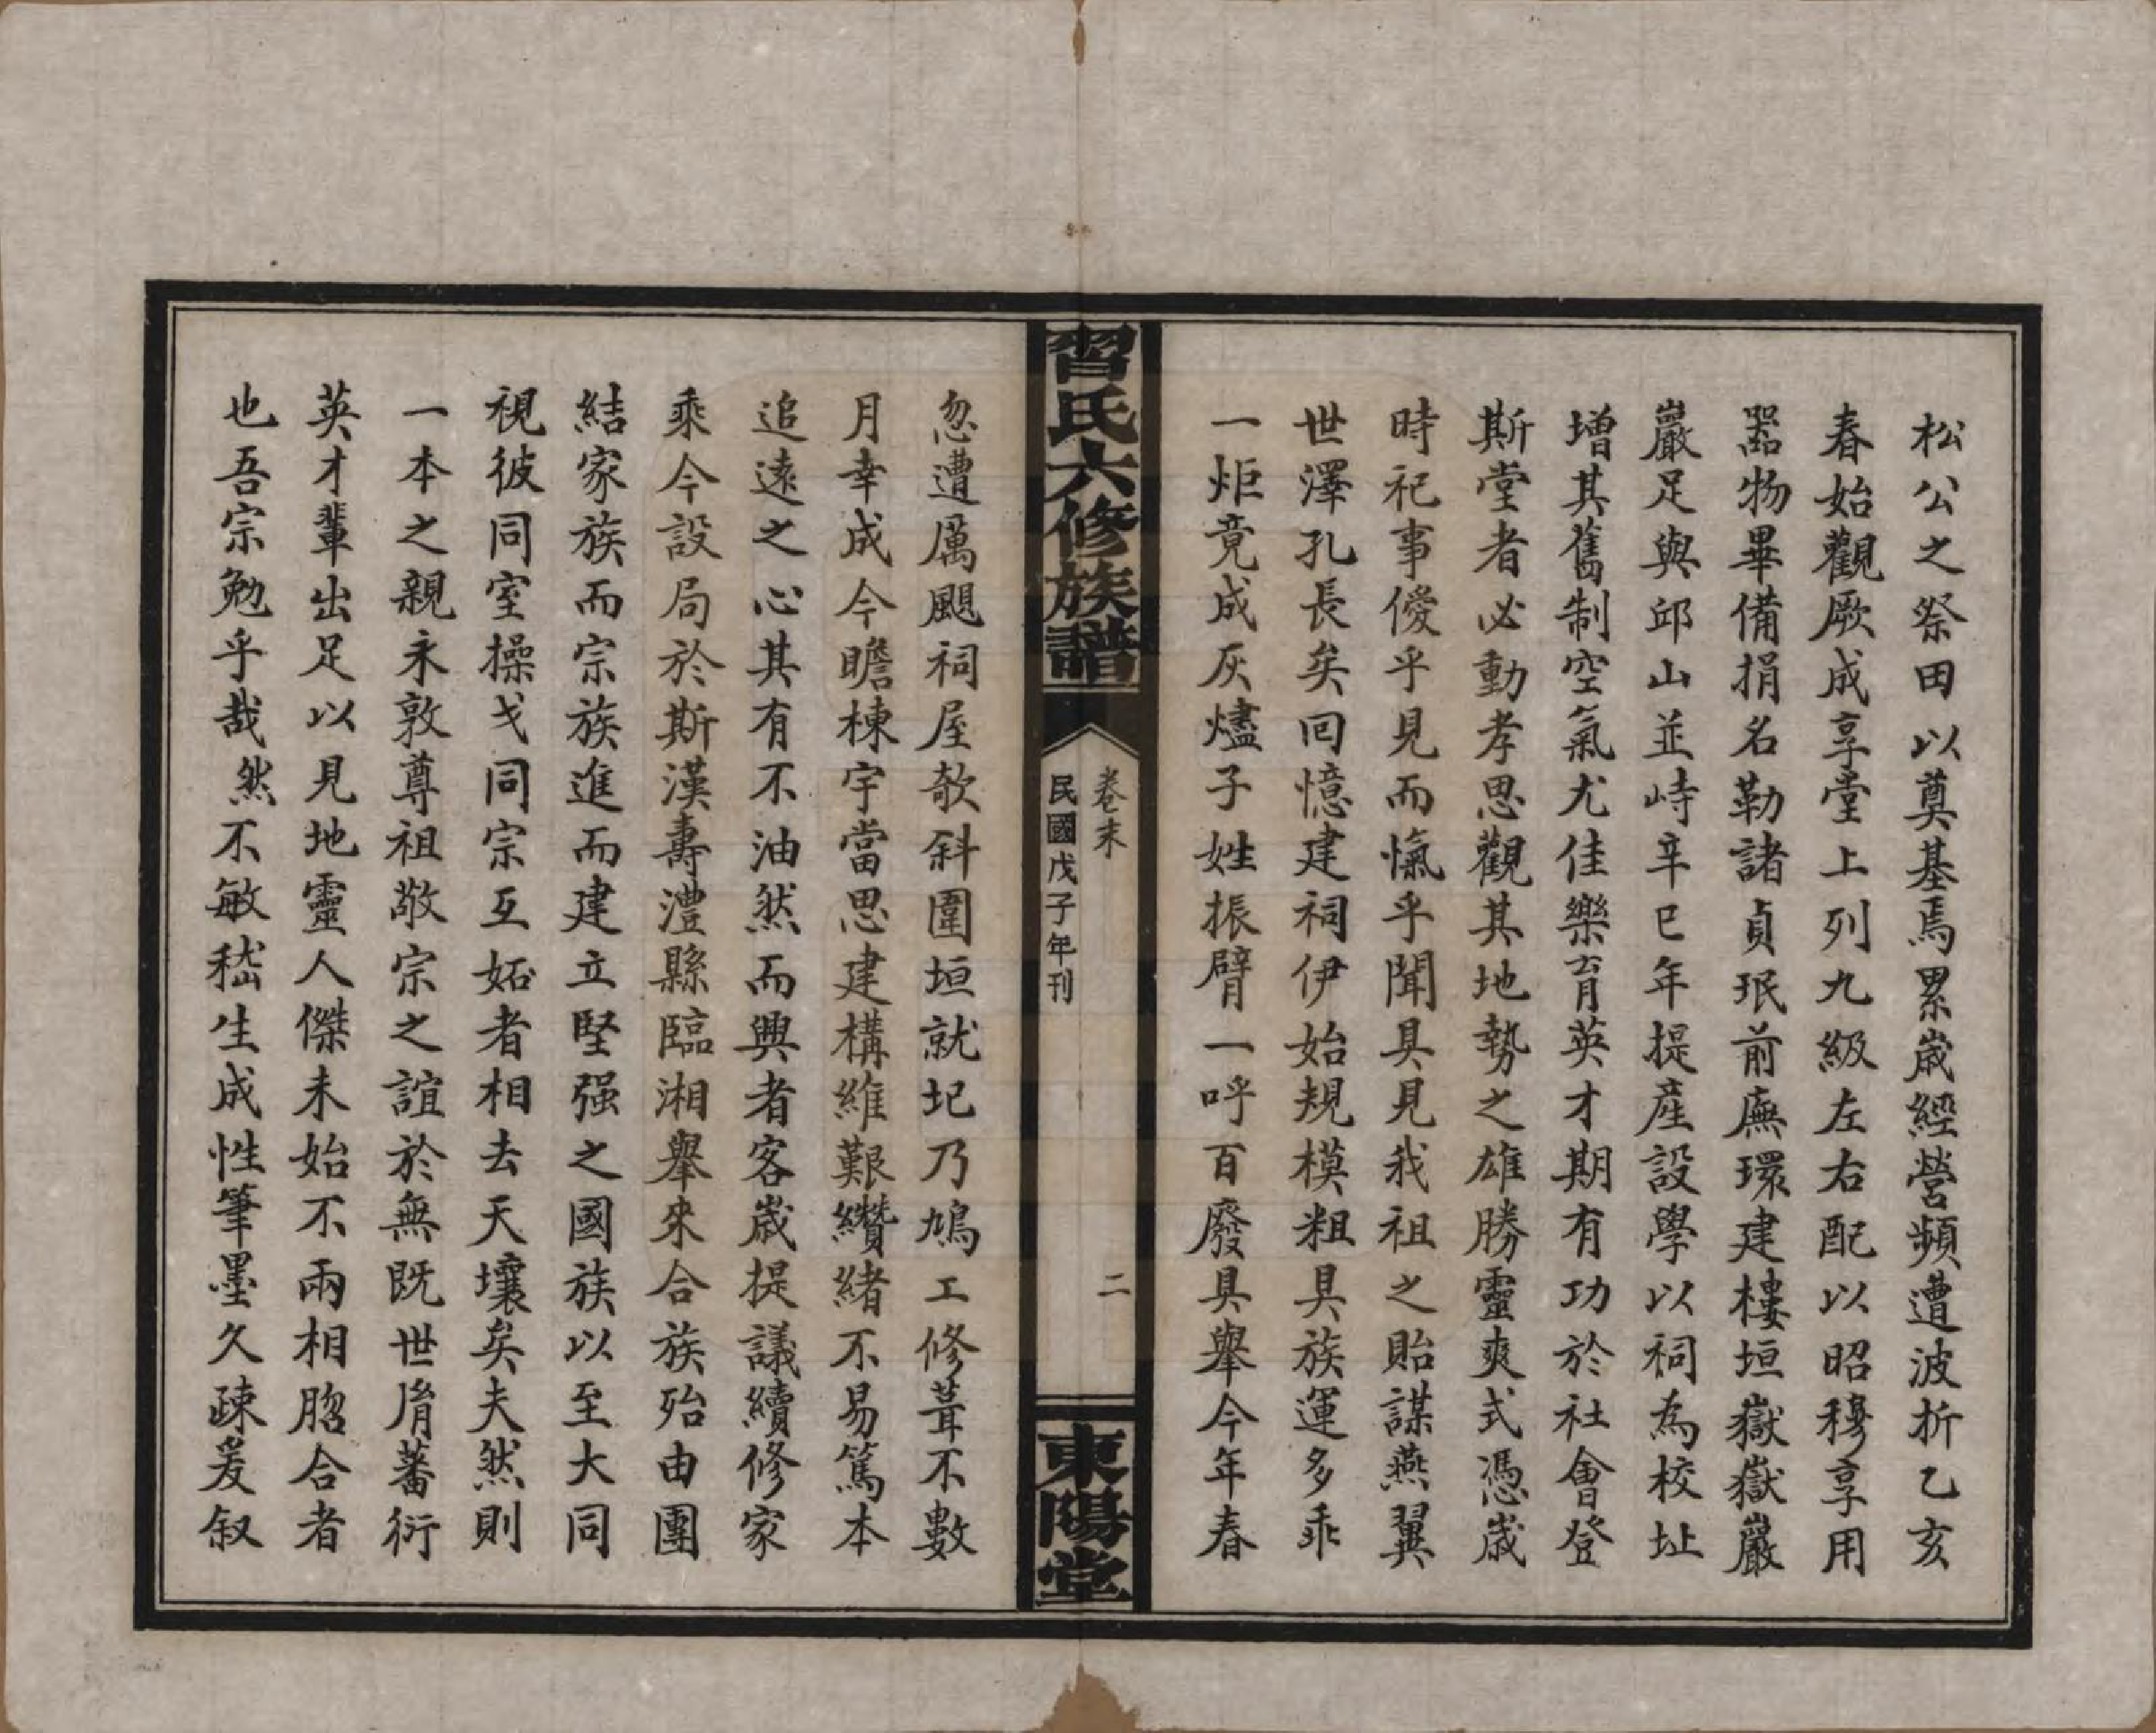 松公之祭田以奠基焉累歲經營頻遭波折乙亥
春始觀厥成享堂上列九級左右配以昭穆享用
器物畢備捐名勒諸貞珉前廡環建樓垣嶽嶽巖
巖足與邱山並峙辛巳年提產設學以祠為校址
增其舊制空氣尤佳樂育英才期有功於社會登
斯堂者必動孝思觀其地勢之雄勝靈爽式憑歲
時祀事僾乎見而愾乎聞具見我祖之貽謀燕翼
世澤孔長矣回憶建祠伊始規模粗具族運多乖
一炬竟成灰燼子姓振臂一呼百廢具舉今年春
習氏六修族譜
卷末
二
民國戊子年刊
東陽堂
忽遭厲颶祠屋欹斜圍垣就圮乃鳩工修葺不數
月幸成今瞻棟宇當思建構維艱纘緒不易篤本
追遠之心其有不油然而興者客歲提議續修家
乘今設局於斯漢壽澧縣臨湘舉來合族殆由團
結家族而宗族進而建立堅强之國族以至大同
視彼同室操戈同宗互妬者相去天壤矣夫然則
一本之親永敦尊祖敬宗之誼於無既世胤蕃衍
英才輩出足以見地靈人傑未始不兩相脗合者
也吾宗勉乎哉然不敏嵇生成性筆墨久疎爰叙